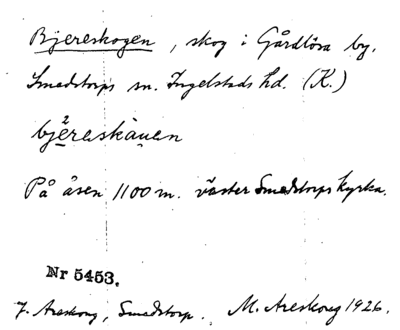 Bjereskogen, skog i Gårdlösa by.
Smedstorps sn. Ingelstads hd. (K.)
bjèreskauen
På åsen 1100 m. väster Smedstorps kyrka.
Nr 5453.
J. Areskoug, Smedstorp. M. Areskoug 1926.